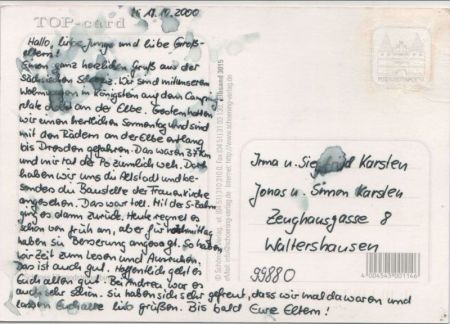 16.10.2000
TOP-card
Hallo, liebe Jungs und liebe Groß-
eltern!
ganz herzlichen Gruß aus der
Sächsischen Schweiz. Wir sind mit unserem
Wohn in Königstein auf dem Camping
platz an der Elbe. Gestern hatten
wir einen herrlichen Sonnentag und sind
mit den Rädern an der Elbe entlang
bis Dresden gefahren. Das waren 37 km
und mir tat der Po ziemlich weh. Dort
haben wir uns die Altstadt und be-
sonders die Baustelle der Frauenkirche
angesehen. Das war toll. Mit der S-Bahn
ging es dann zurück. Heute regnet es
schon von früh an, aber für nachmittag
haben sie Besserung angesagt. So haben
wir Zeit zum Lesen und Ausruhen.
Das ist auch gut. Hoffentlich geht es
Euch allen gut. Bei Andrea war es
auch sehr schön. Sie haben sich sehr gefreut, dass wir mal da waren und
lassen Euch alle lieb grüßen. Bis bald Eure Eltern!
Irma u. Siegfried Karsten
Jonas u. Simon Karsten
Zeughausgasse 8
Waltershausen
99880
4 04543 001146